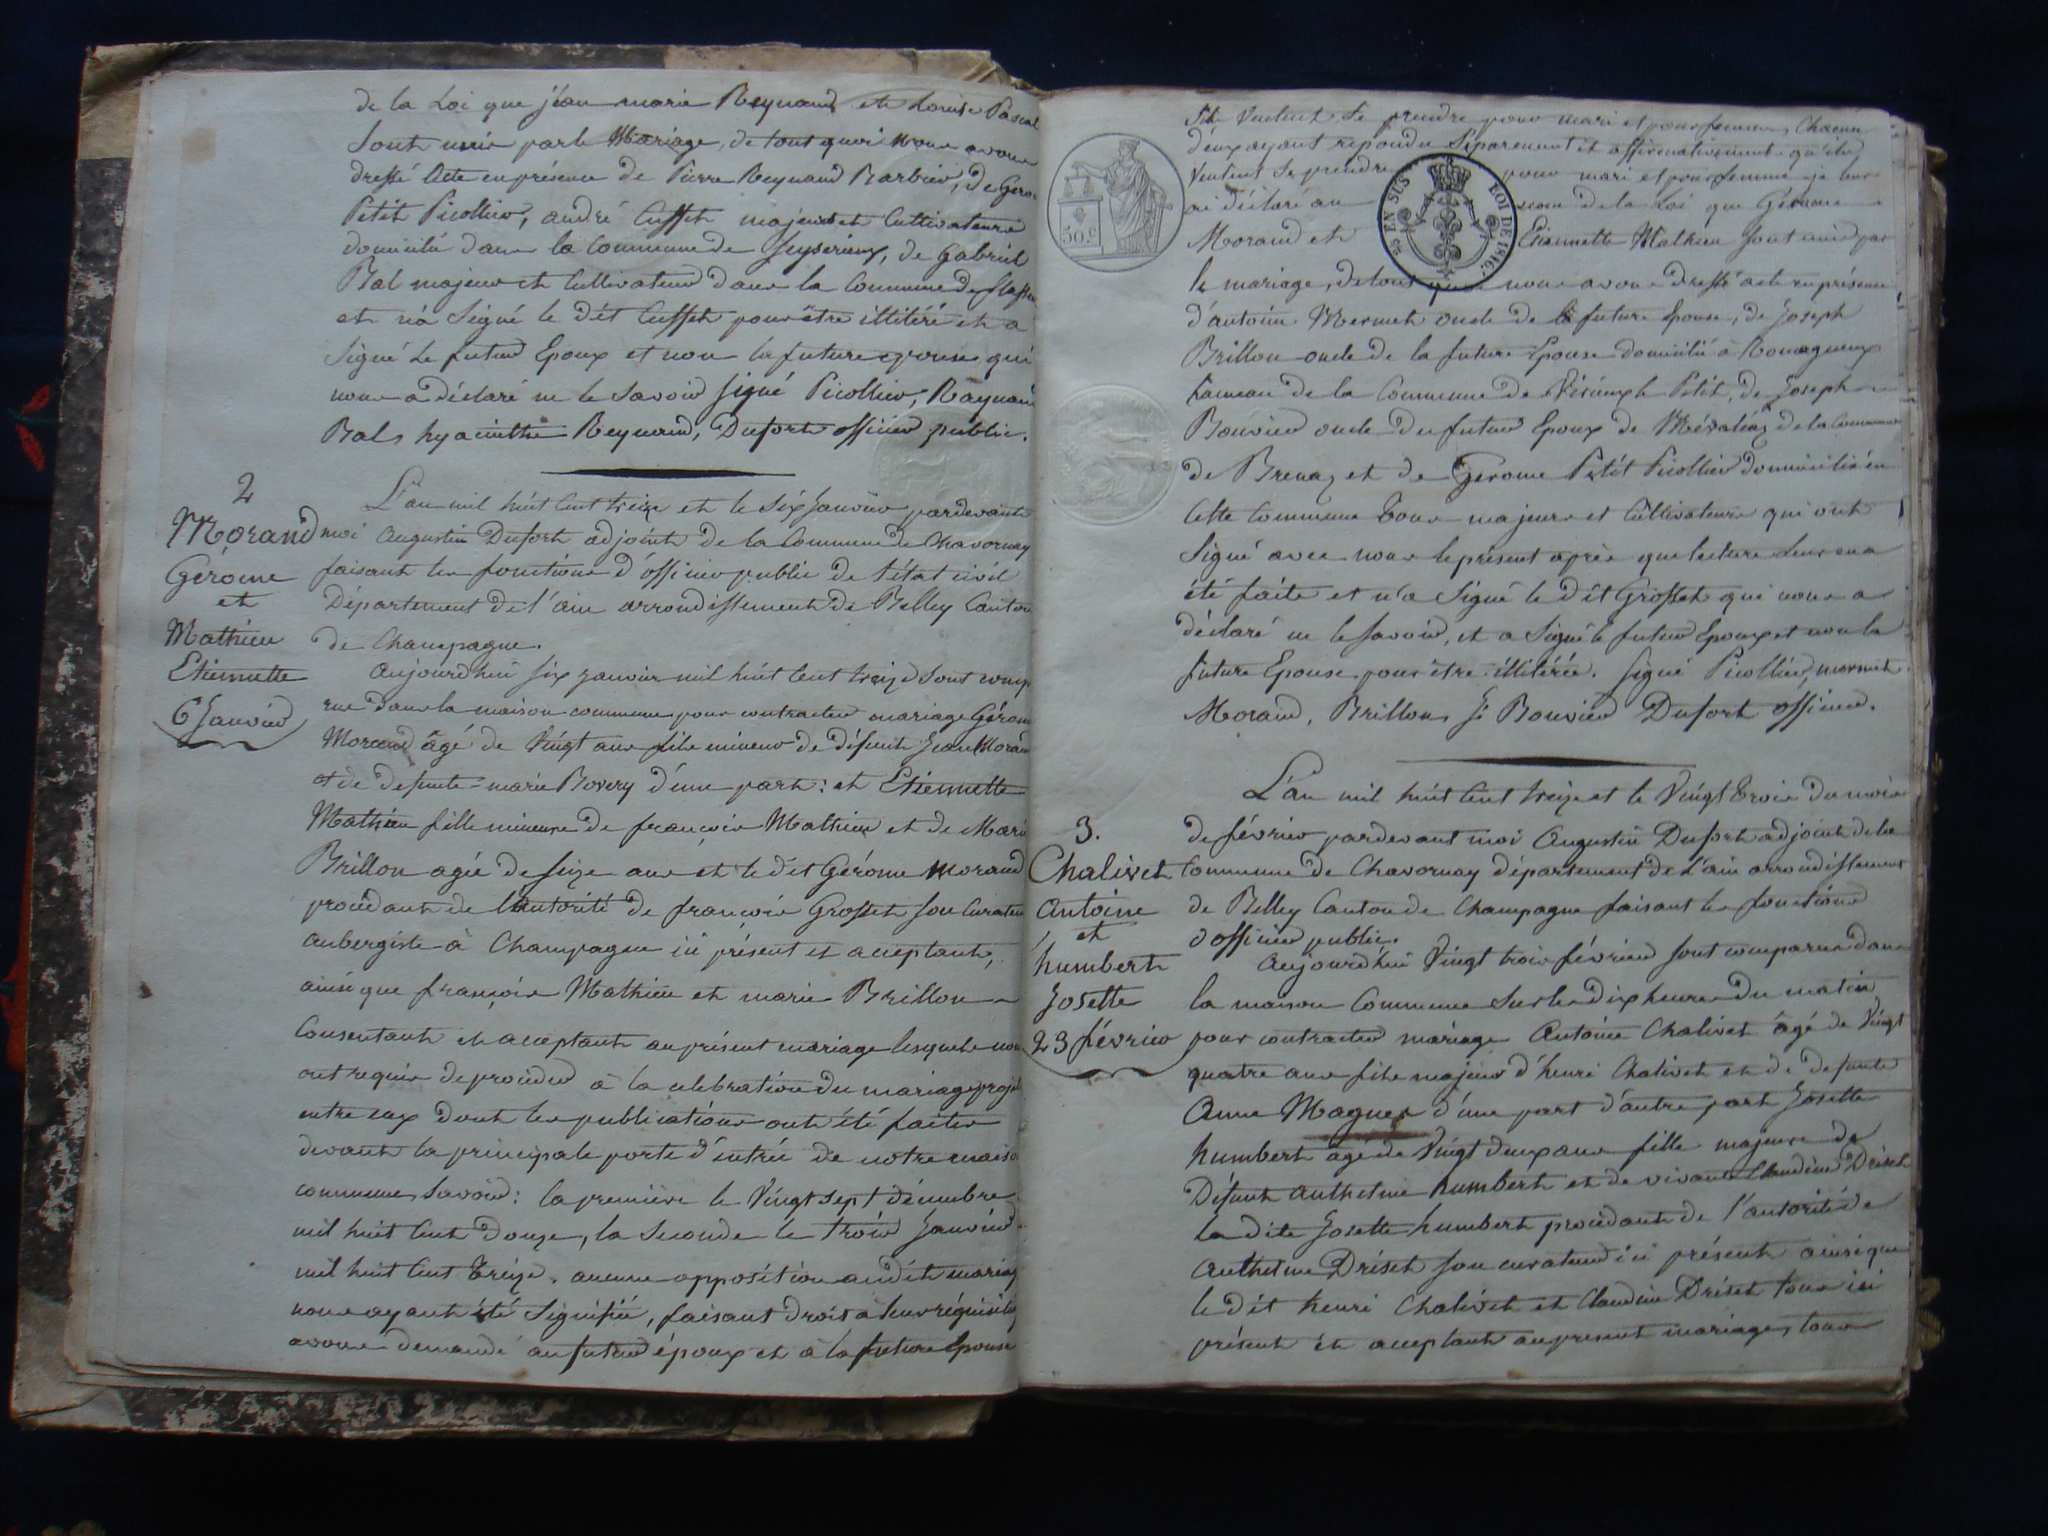 de la Loi que jean marie Reynaud et Louise Pascal
Sont unis par le Mariage, de tout quoi nous avons
dressé Acte en présence de Pierre Reynaud Barbier, de Gero
Petit Picollier, andré Cusset majeurs et Cultivateurs
domicilié dans la Commune de Seyserieux, de Gabriel
Bal majeur et Cultivateur dans la Commune de
et n'a Signé le dit Cusset pour être illitéré et a
Signé Le futur Epoux et non la future epouse qui
nous a déclaré ne le Savoir Signé Picollier, Raynaud
Bal, hyacinthe Reynaud, Dufort officier public.
2
Morand
Gérome
et
Mathieu
Etiennette
6 Janvier
L'an mil huit Cent treize et le Six Janvier pardevant
moi Augustin Dufort adjoint de la Commune de Chavornay
faisant les fonctions d'officier public de l'état civil
Département de l'ain arrondissement de Belley Canton
de Champagne.
Aujourd'hui six janvier mil huit Cent treize Sont comp
rus dans la maison commune pour contracter mariage Gérome
Morand âgé de Vingt ans fils mineur de défunt Jean Morand
et de defunte marie Bovery d'une part : et Etiennette
Mathieu fille mineure de françois Mathieu et de Marie
Brillon agée de Seize ans et le dit Gérome Morand
procédant de l'autorité de françois Grosset son Curateur
aubergiste à Champagne ici présent et acceptant,
ainsi que françois Mathieu et marie Brillon
Consentant et acceptant au présent mariage lesquels nous
ont requis de procéder à la celebration du mariage projet
entre eux dont les publications ont été faites
devant la principale porte d'entrée de notre maison
commune Savoir : la première le Vingt sept décembre
mil huit Cent Douze, la Seconde le trois Janvier
mil huit Cent Treize. aucune opposition audit mariage
nous ayant été Signifié, faisant droit a leur réquisition
avons demandé au futur époux et à la future Epouse
50 c
EN SUS
LOI DE 1816.
S'ils Veulent Se prendre pour mari et pour femme, Chacun
d'eux ayant repondu Séparement et affirmativement qu'ils
Veulent Se prendre pour mari et pour femme je leur
ai déclaré au nom de la Loi que Gérome
Morand et Etiennette Mathieu Sont unis par
le mariage, de tout quoi nous avons dressé acte en présence
d'antoine Mermet oncle de la future Epouse, de Joseph
Brillon oncle de la future Epouse domicilié à Romagneux
hameau de la Commune de Virieux le Petit, de Joseph
Bouvier oncle du futur Epoux de Méraléaz de la Commune
de Brenaz et de Gérome Petit Picollier domicilié en
Cette Commune Tous majeurs et Cultivateurs qui ont
Signé avec nous le présent après que lecture leur en a
été faite et n'a Signé le dit Grosset qui nous a
déclaré ne le Savoir, et a Signé le futur Epoux et non la
future Epouse pour être illitérée. Signé Picollier, mermet
Morand, Brillon, Jh Bouvier Dufort officier.
3.
Chalivet
Antoine
et
humbert
Josette
23 février
L'an mil huit Cent treize et le Vingt Trois du mois
de février pardevant moi Augustin Dufort adjoint de la
Commune de Chavornay département de L'ain arrondissement
de Belley Canton de Champagne faisant les fonctions
d'officier public.
Aujourd'hui Vingt trois février Sont comparus dans
la maison Commune Sur les dix heures du matin
pour contracter mariage Antoine Chalivet âgé de Vingt
quatre ans fils majeur d'henri Chalivet et de defunte
Anne Magnes d'une part d'autre part Josette
humbert âge de Vingt deux ans fille majeure de
Défunt anthelme humbert et de vivante Claudine Driset
la dite Josette humbert procédant de l'autorité de
anthelme Driset son curateur ici présent ainsi que
le dit henri Chalivet et Claudine Driset tous ici
présent et acceptant au present mariage, tous